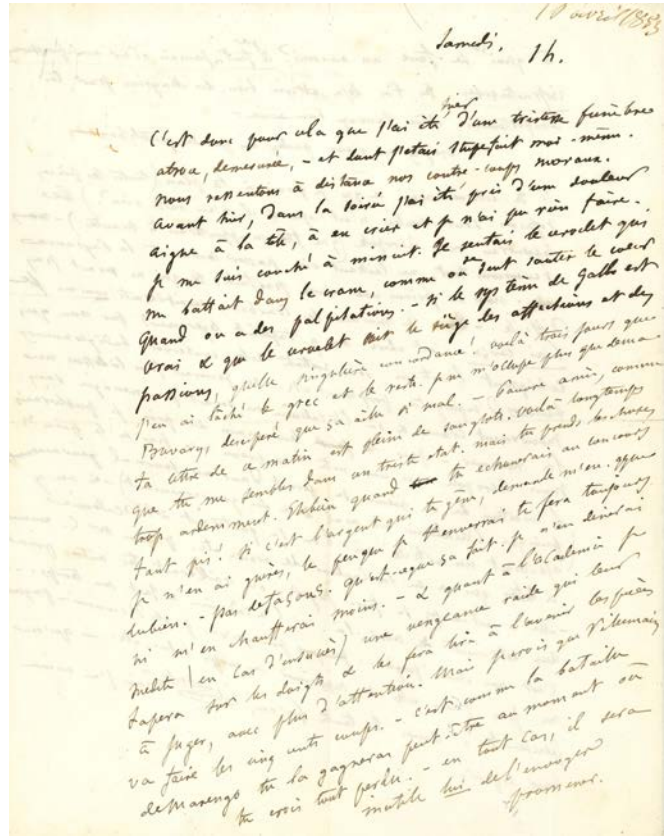 10 avril 1853
Samedi. 1 h.
C'est donc pour cela que j'ai été hier d'une tristesse funèbre
atroce, démesurée, - et dont j'étais stupéfait moi-même.
nous ressentons à distance nos contre-coups moraux.
avant hier, dans la soirée j'ai été pris d'une douleur
aigue à la tête, à en crier et je n'ai pu rien faire.
je me suis couché à minuit. Je sentais le cervelet qui
me battait dans le crane, comme on se sent sauter le coeur
quand on a des palpitations. - si le système de Gall est
vrai & que le cervelet soit le siège des affections et des
passions, quelle singulière concordance! voilà trois jours que
j'en ai lâché le grec et le reste. je ne m'occupe plus que de ma
Bovary, desespéré que ça aille si mal. - Pauvre amie, comme
ta lettre de ce matin est pleine de sanglots. voilà longtemps
que tu me sembles dans un triste état. mais tu prends les choses
trop ardemment. Eh bien quand tu echouerais au concours
tant pis! si c'est l'argent qui te gêne, demande m'en.
je n'en ai guères, le peu que je t'enverrai te fera toujours
du bien. - pas de façons. qu'est-ce que ça fait. je n'en dinerai
ni m'en chaufferai moins. - & quant à l'académie je
médite (en cas d'insuccès) une vengeance raide qui leur
tapera sur les doigts & les fera lire à l'avenir les pièces
à juger, avec plus d'attention. Mais je crois que Villemain
va faire les cinq cents coups. - c'est comme la bataille
de Marengo tu la gagneras peut-être au moment où
tu crois tout perdu. - en tout cas, il sera
inutile lui de l'envoyer
promener.